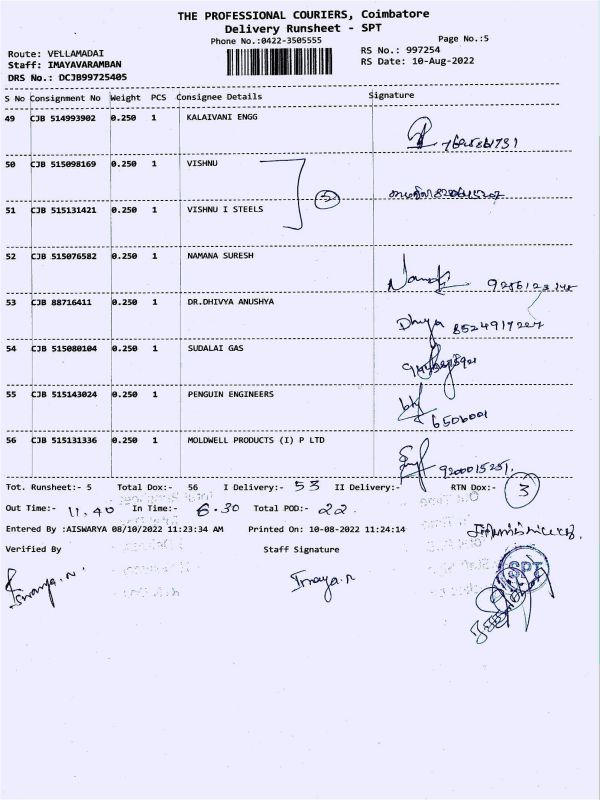 THE PROFESSIONAL COURIERS, Coimbatore
Delivery Runsheet - SPT
Phone No.:0422-3505555 Page No.:5
Route: VELLAMADAI RS No.: 997254
Staff: IMAYAVARAMBAN RS Date: 10-Aug-2022
DRS No.: DCJB99725405
S No Consignment No Weight PCS Consignee Details Signature
49 CJB 514993902 0.250 1 KALAIVANI ENGG
50 CJB 515098169 0.250 1 VISHNU
51 CJB 515131421 0.250 1 VISHNU I STEELS
52 CJB 515076582 0.250 1 NAMANA SURESH
53 CJB 88716411 0.250 1 DR.DHIVYA ANUSHYA
Dhivya 8524917227
54 CJB 515080104 0.250 1 SUDALAI GAS
55 CJB 515143024 0.250 1 PENGUIN ENGINEERS
6506001
56 CJB 515131336 0.250 1 MOLDWELL PRODUCTS (I) P LTD
9200015251.
Tot. Runsheet:- 5 Total Dox:- 56 I Delivery:- 53 II Delivery:- RTN Dox:- 3
Out Time:- 11.40 In Time:- 6.30 Total POD:- 22.
Entered By :AISWARYA 08/10/2022 11:23:34 AM Printed On: 10-08-2022 11:24:14
Verified By Staff Signature
Imaya.n
SPT